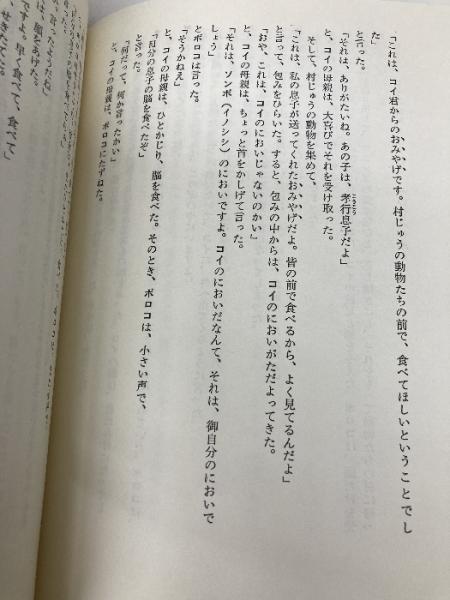 「これは、コイ君からのおみやげです。村じゅうの動物たちの前で、食べてほしいということでし
た」
と言った。
「それは、ありがたいね。あの子は、孝行息子だよ」
と、コイの母親は、大喜びでそれを受け取った。
そして、村じゅうの動物を集めて、
「これは、私の息子が送ってくれたおみやげだよ。皆の前で食べるから、よく見てるんだよ」
と言って、包みをひらいた。すると、包みの中からは、コイのにおいがただよってきた。
「おや、これは、コイのにおいじゃないのかい」
と、コイの母親は、ちょっと首をかしげて言った。
「それは、ソンボ（イノシシ）のにおいですよ。コイのにおいだなんて、それは、御自分のにおいで
しょう」
とボロコは言った。
「そうかねえ」
と、コイの母親は、ひとかじり、脳を食べた。そのとき、ボロコは、小さい声で、
「自分の息子の脳を食べたぞ」
と言った。
「何だって、何か言ったかい」
と、コイの母親は、ボロコにたずねた。
言ったようだね」
は、頭をあげた。
ですよ。早く食べて、食べて」
せきたてた。